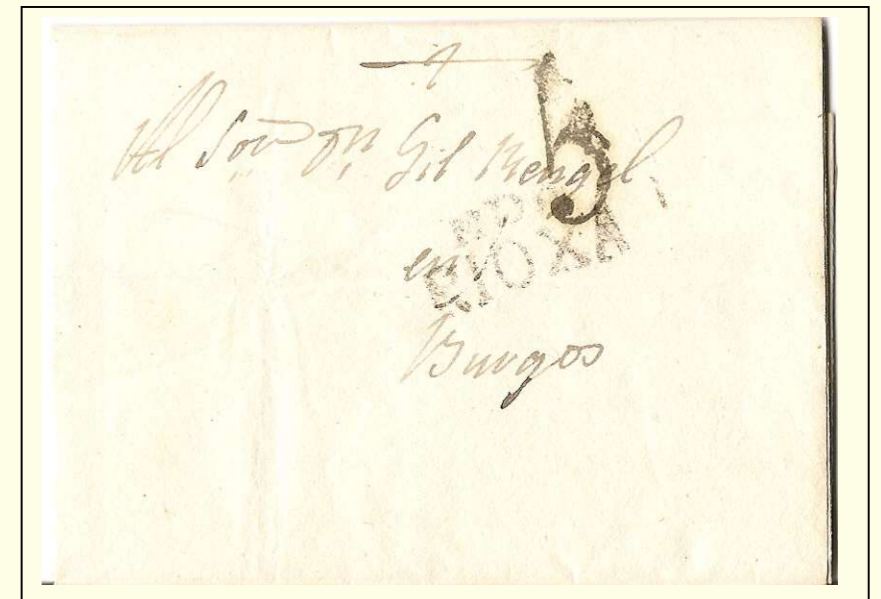 Al Sor Dn Gil Rengel
5
RIOXA
en
Burgos